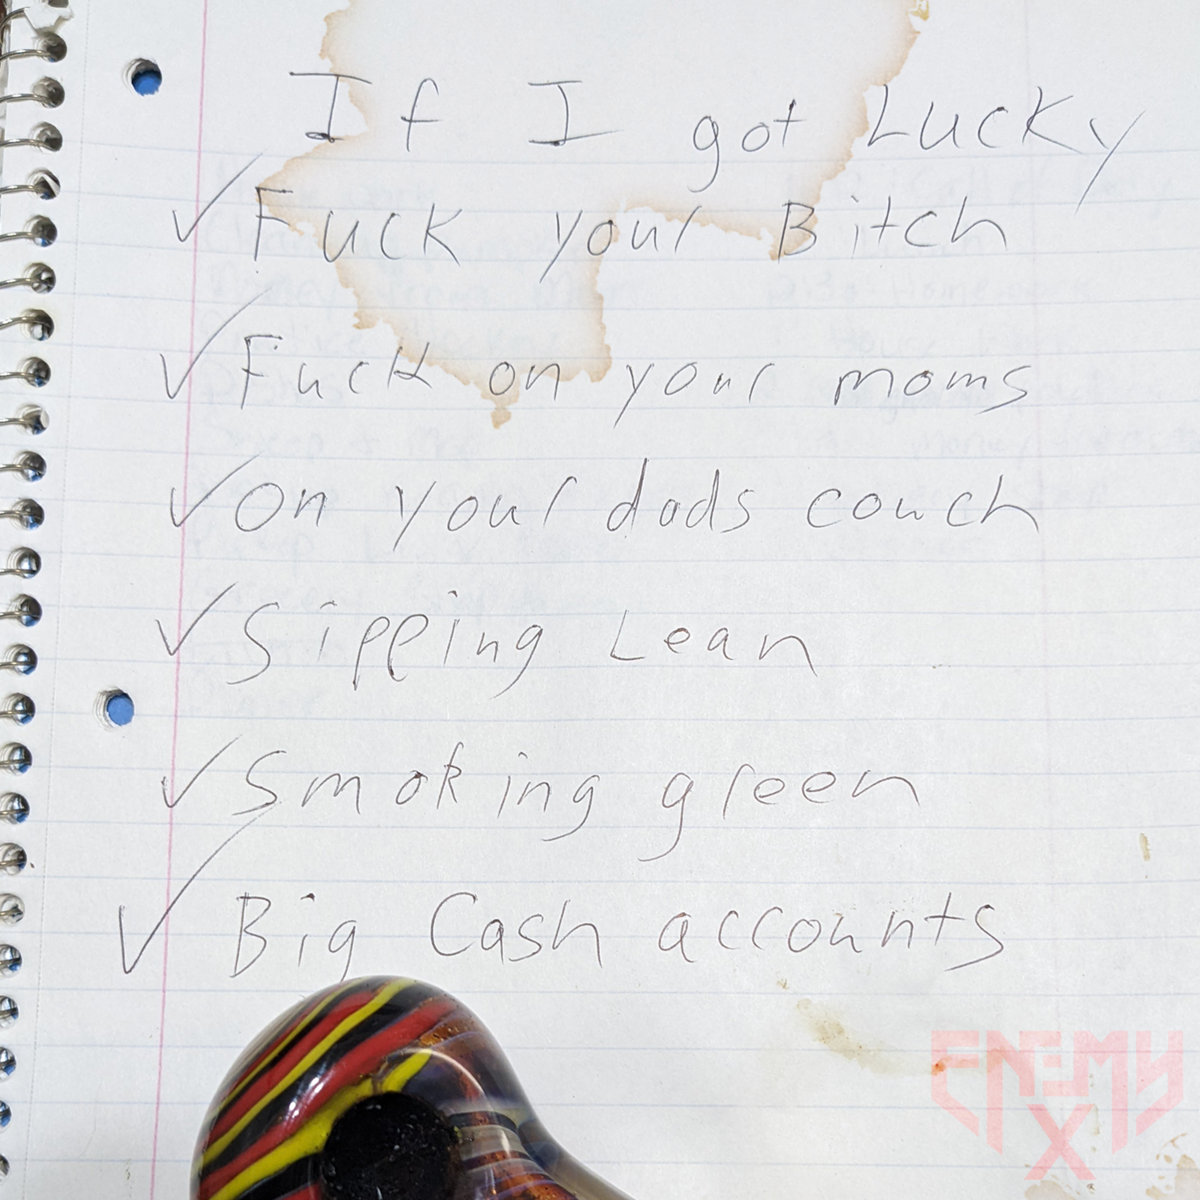 If I got Lucky
✓ Fuck your Bitch
✓ Fuck on your moms
✓ On your dads couch
✓ Sipping Lean
✓ Smoking green
✓ Big Cash accounts
ENEMY
X